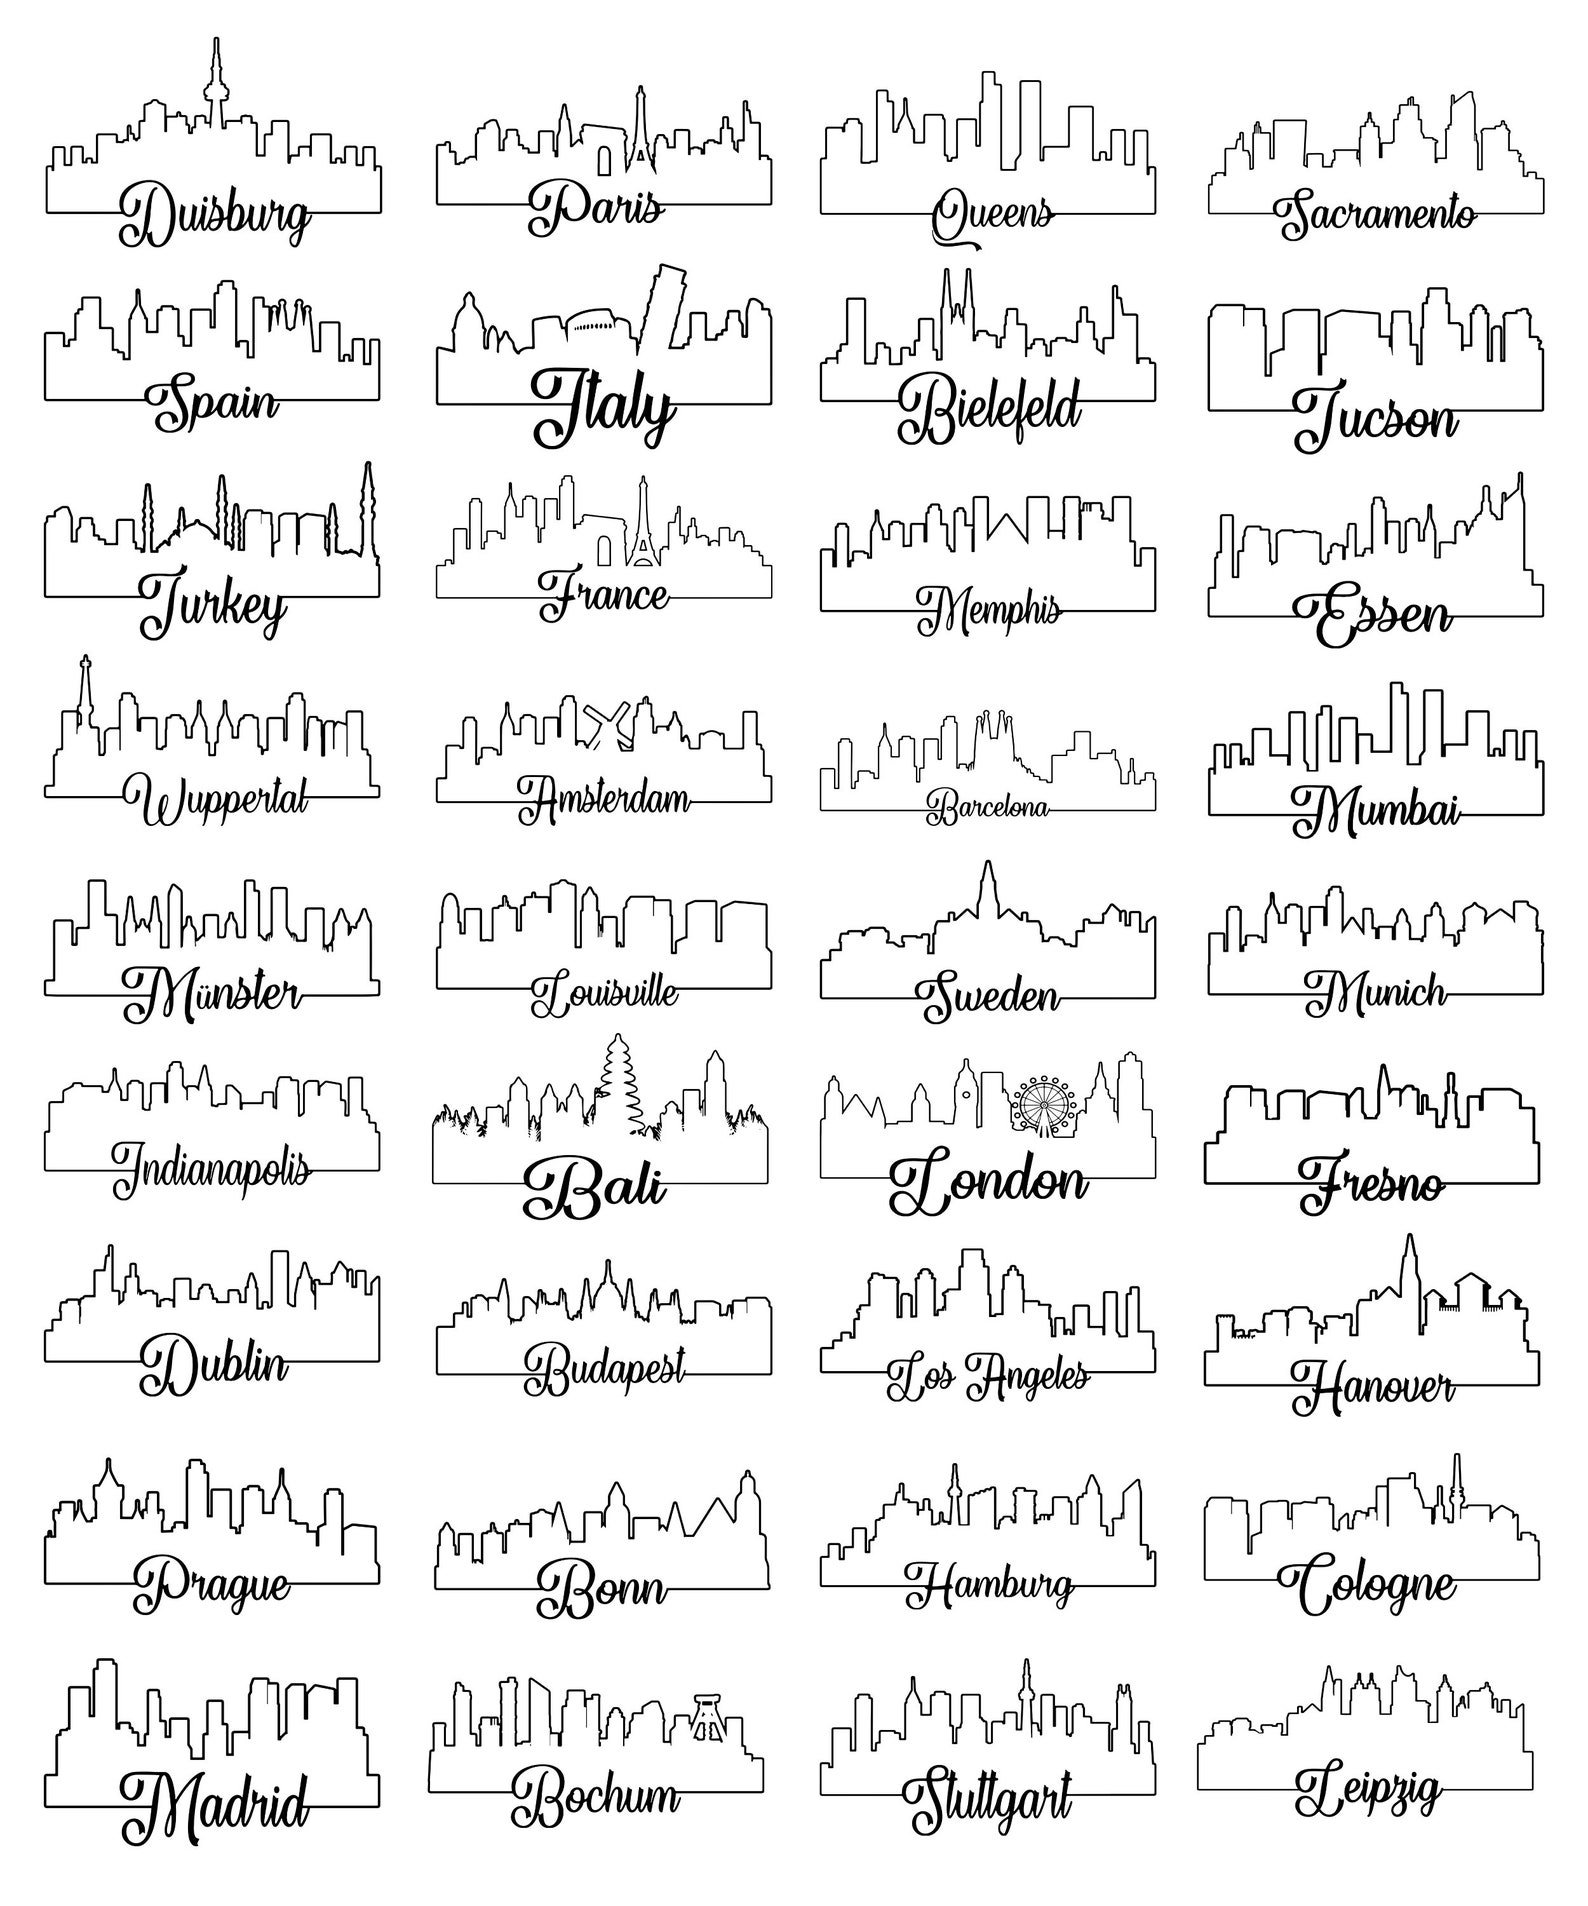 Duisburg
Paris
Queens
Sacramento
Spain
Italy
Bielefeld
Tucson
Turkey
France
Memphis
Essen
Wuppertal
Amsterdam
Barcelona
Mumbai
Münster
Louisville
Sweden
Munich
Indianapolis
Bali
London
Fresno
Dublin
Budapest
Los Angeles
Hanover
Prague
Bonn
Hamburg
Cologne
Madrid
Bochum
Stuttgart
Leipzig